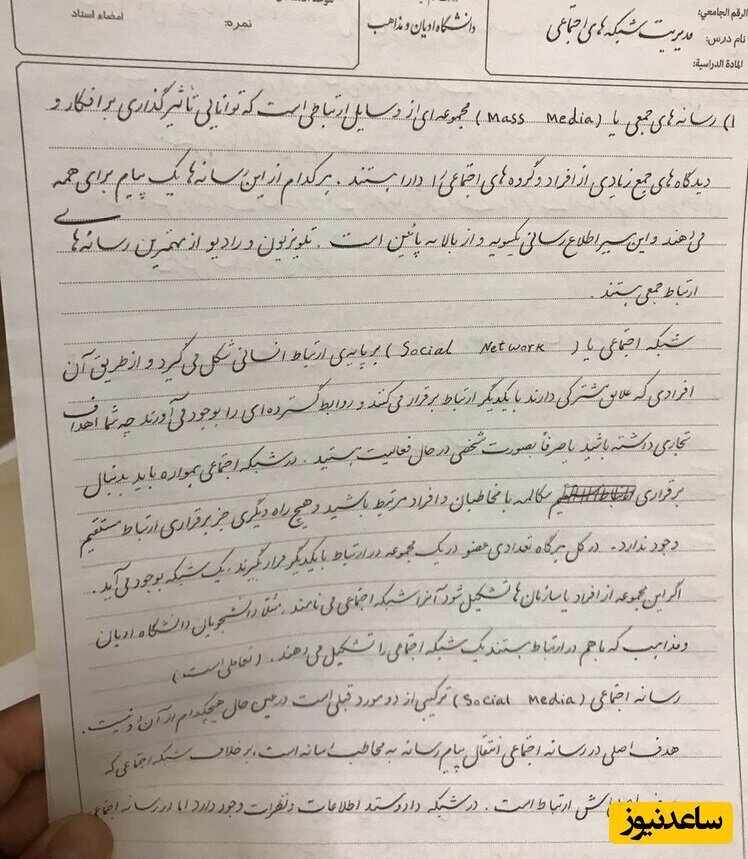 الرقم الجامعي:
نام درس: مدیریت شبکه های اجتماعی
المادة الدراسية:
دانشگاه ادیان و مذاهب
نمره:
امضاء استاد
۱) رسانه های جمعی یا (Mass Media) مجموعه ای از وسایل ارتباطی است که توانایی تأثیرگذاری بر افکار و
دیدگاه های جمع زیادی از افراد و گروه های اجتماعی را دارا هستند . هر کدام از این رسانه ها یک پیام برای همه
می دهند و این سیر اطلاع رسانی یکسویه و از بالا به پائین است . تلویزیون و رادیو از مهمترین رسانه های
ارتباط جمعی هستند .
شبکه اجتماعی یا (Social Network) بر پایه ی ارتباط انسانی شکل می گیرد و از طریق آن
افرادی که علایق مشترکی دارند با یکدیگر ارتباط برقرار می کنند و روابط گسترده ای را بوجود می آورند چه شما اهداف
تجاری داشته باشید یا صرفاً بصورت شخصی در حال فعالیت هستید . در شبکه اجتماعی همواره باید بدنبال
برقراری مکالمه با مخاطبان و افراد مرتبط باشید و هیچ راه دیگری جز برقراری ارتباط مستقیم
وجود ندارد . در کل هرگاه تعدادی عضو در یک مجموعه در ارتباط با یکدیگر قرار گیرند . یک شبکه بوجود می آید .
اگر این مجموعه از افراد یا سازمان ها تشکیل شود آنرا شبکه اجتماعی می نامند . مثلاً دانشجویان دانشگاه ادیان
و مذاهب که با هم در ارتباط هستند یک شبکه اجتماعی را تشکیل می دهند . (تعاملی است)
رسانه اجتماعی (Social Media) ترکیبی از دو مورد قبلی است در عین حال هیچکدام از آن دو نیست .
هدف اصلی در رسانه اجتماعی انتقال پیام رسانه به مخاطب رسانه است . برخلاف شبکه اجتماعی که
ارتباط است . در شبکه داد و ستد اطلاعات و نظرات وجود دارد اما در رسانه اجتماعی
ساعدنیوز